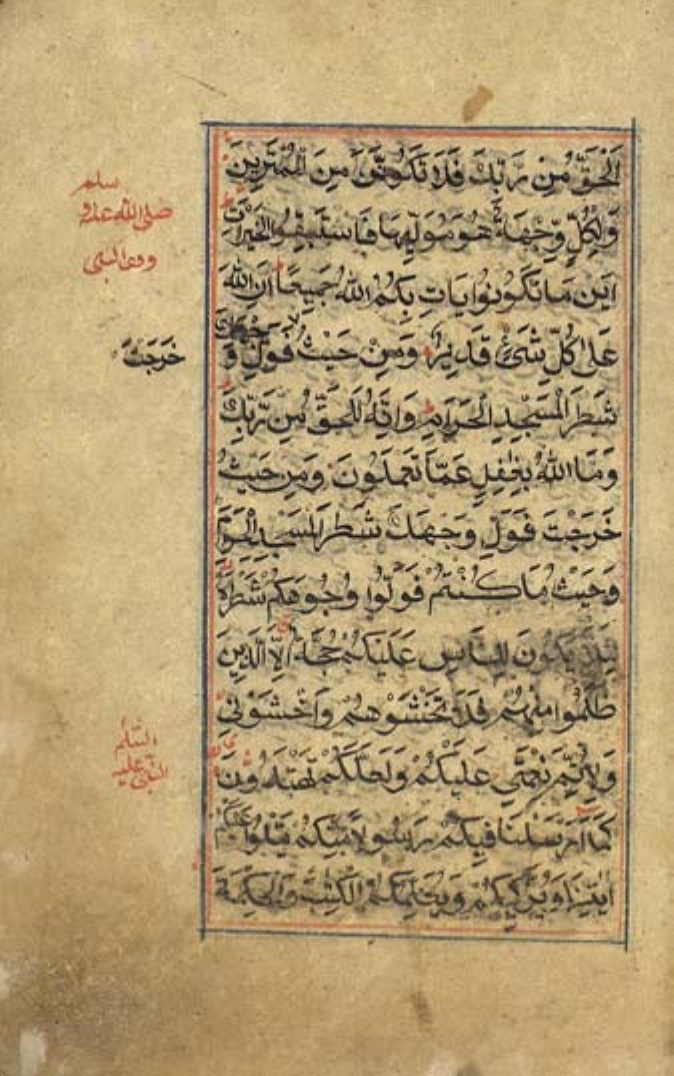 اَلْحَقُّ مِنْ رَّبِّكَ فَلَا تَكُوْنَنَّ مِنَ الْمُمْتَرِيْنَ
وَلِكُلٍّ وِّجْهَةٌ هُوَ مُوَلِّيْهَا فَاسْتَبِقُوا الْخَيْرَاتِ
اَيْنَ مَا تَكُوْنُوْا يَاتِ بِكُمُ اللهُ جَمِيْعًا اِنَّ اللهَ
عَلٰى كُلِّ شَىْءٍ قَدِيْرٌ وَمِنْ حَيْثُ فَوَلِّ وَجْهَكَ
شَطْرَ الْمَسْجِدِ الْحَرَامِ وَاِنَّهُ لَلْحَقُّ مِنْ رَّبِّكَ
وَمَا اللهُ بِغٰفِلٍ عَمَّا تَعْمَلُوْنَ وَمِنْ حَيْثُ
خَرَجْتَ فَوَلِّ وَجْهَكَ شَطْرَ الْمَسْجِدِ الْحَرَا
وَحَيْثُ مَا كُنْتُمْ فَوَلُّوْا وُجُوْهَكُمْ شَطْرَهٗ
لِئَلَّا يَكُوْنَ لِلنَّاسِ عَلَيْكُمْ حُجَّةٌ اِلَّا الَّذِيْنَ
ظَلَمُوْا مِنْهُمْ فَلَا تَخْشَوْهُمْ وَاخْشَوْنِيْ
وَلِاُتِمَّ نِعْمَتِيْ عَلَيْكُمْ وَلَعَلَّكُمْ تَهْتَدُوْنَ
كَمَا اَرْسَلْنَا فِيْكُمْ رَسُوْلًا مِّنْكُمْ يَتْلُوْا عَلَيْكُمْ
اٰيٰتِنَا وَيُزَكِّيْكُمْ وَيُعَلِّمُكُمُ الْكِتٰبَ وَالْحِكْمَةَ
سلم
صلى الله عليه و
النبى
خَرَجْتَ
السلم
النبى عليه